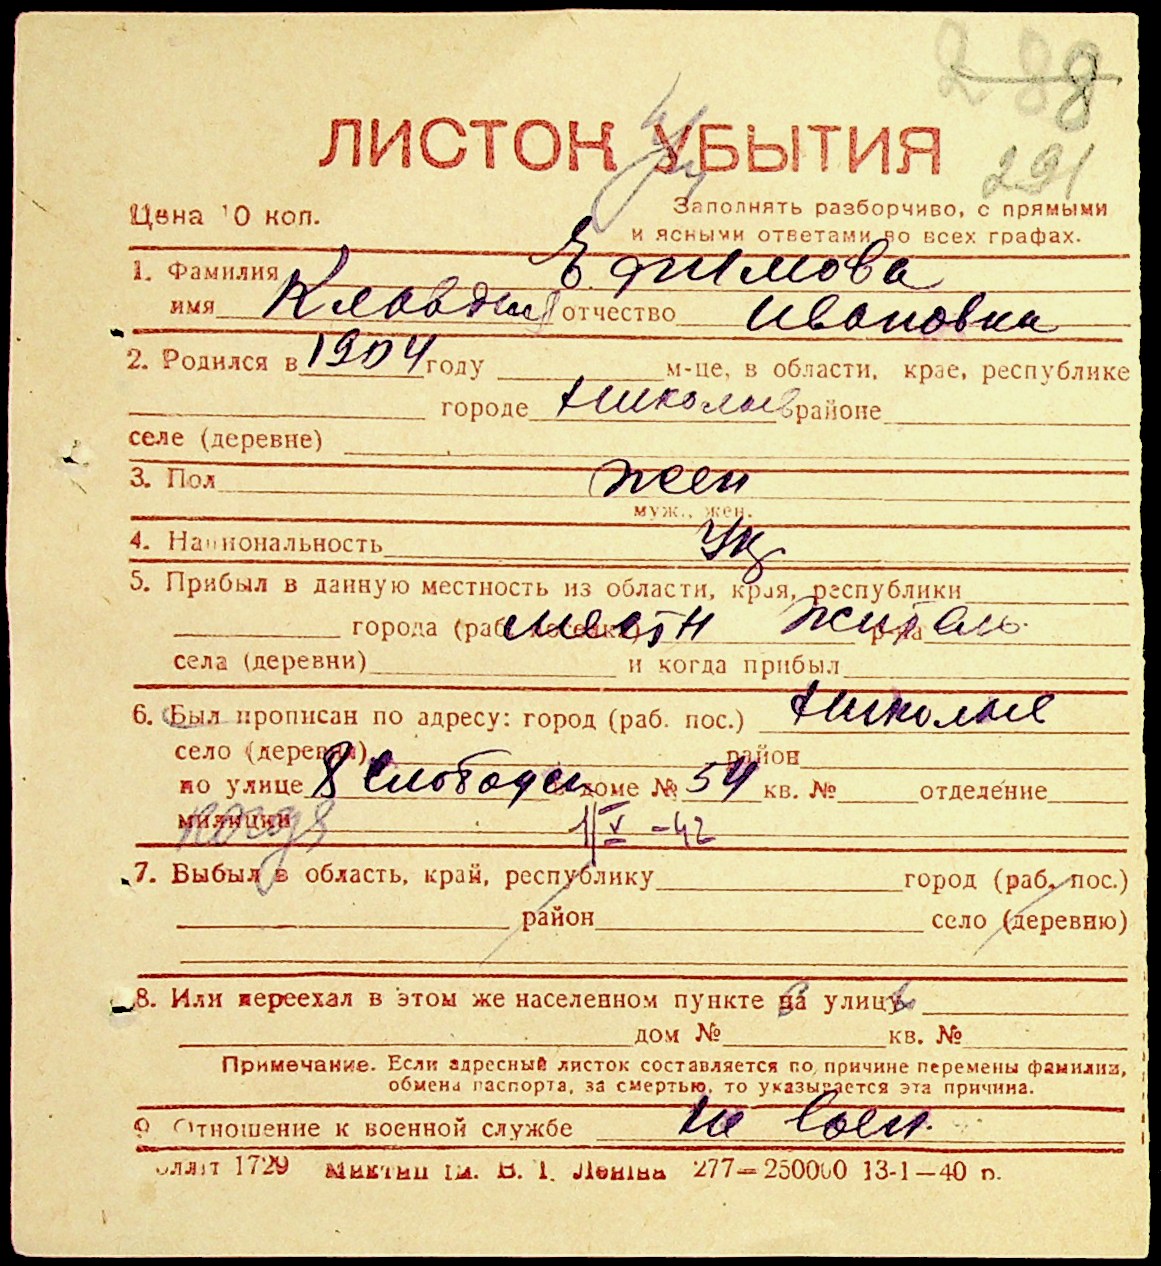 288
291
ЛИСТОК УБЫТИЯ
Цена 10 коп.
Заполнять разборчиво, с прямыми
и ясными ответами во всех графах.
1. Фамилия Ефимова
имя Клавдия отчество Ивановна
2. Родился в 1904 году м-це, в области, крае, республике
городе Николаев районе
селе (деревне)
3. Пол жен
муж., жен.
4. Национальность Ук
5. Прибыл в данную местность из области, края, республики
города (раб. поселка) местн житель р-на
села (деревни) и когда прибыл
6. Был прописан по адресу: город (раб. пос.) Николаев
село (деревня) район
по улице 8 Слободск в доме № 54 кв. № отделение
милиции когда 1/V-42
7. Выбыл в область, край, республику город (раб. пос.)
район село (деревню)
8. Или переехал в этом же населенном пункте на улицу
дом № кв. №
Примечание. Если адресный листок составляется по причине перемены фамилии,
обмена паспорта, за смертью, то указывается эта причина.
9. Отношение к военной службе не воен.
1729 ім. В. І. Леніна 277—250000 13-1—40 р.